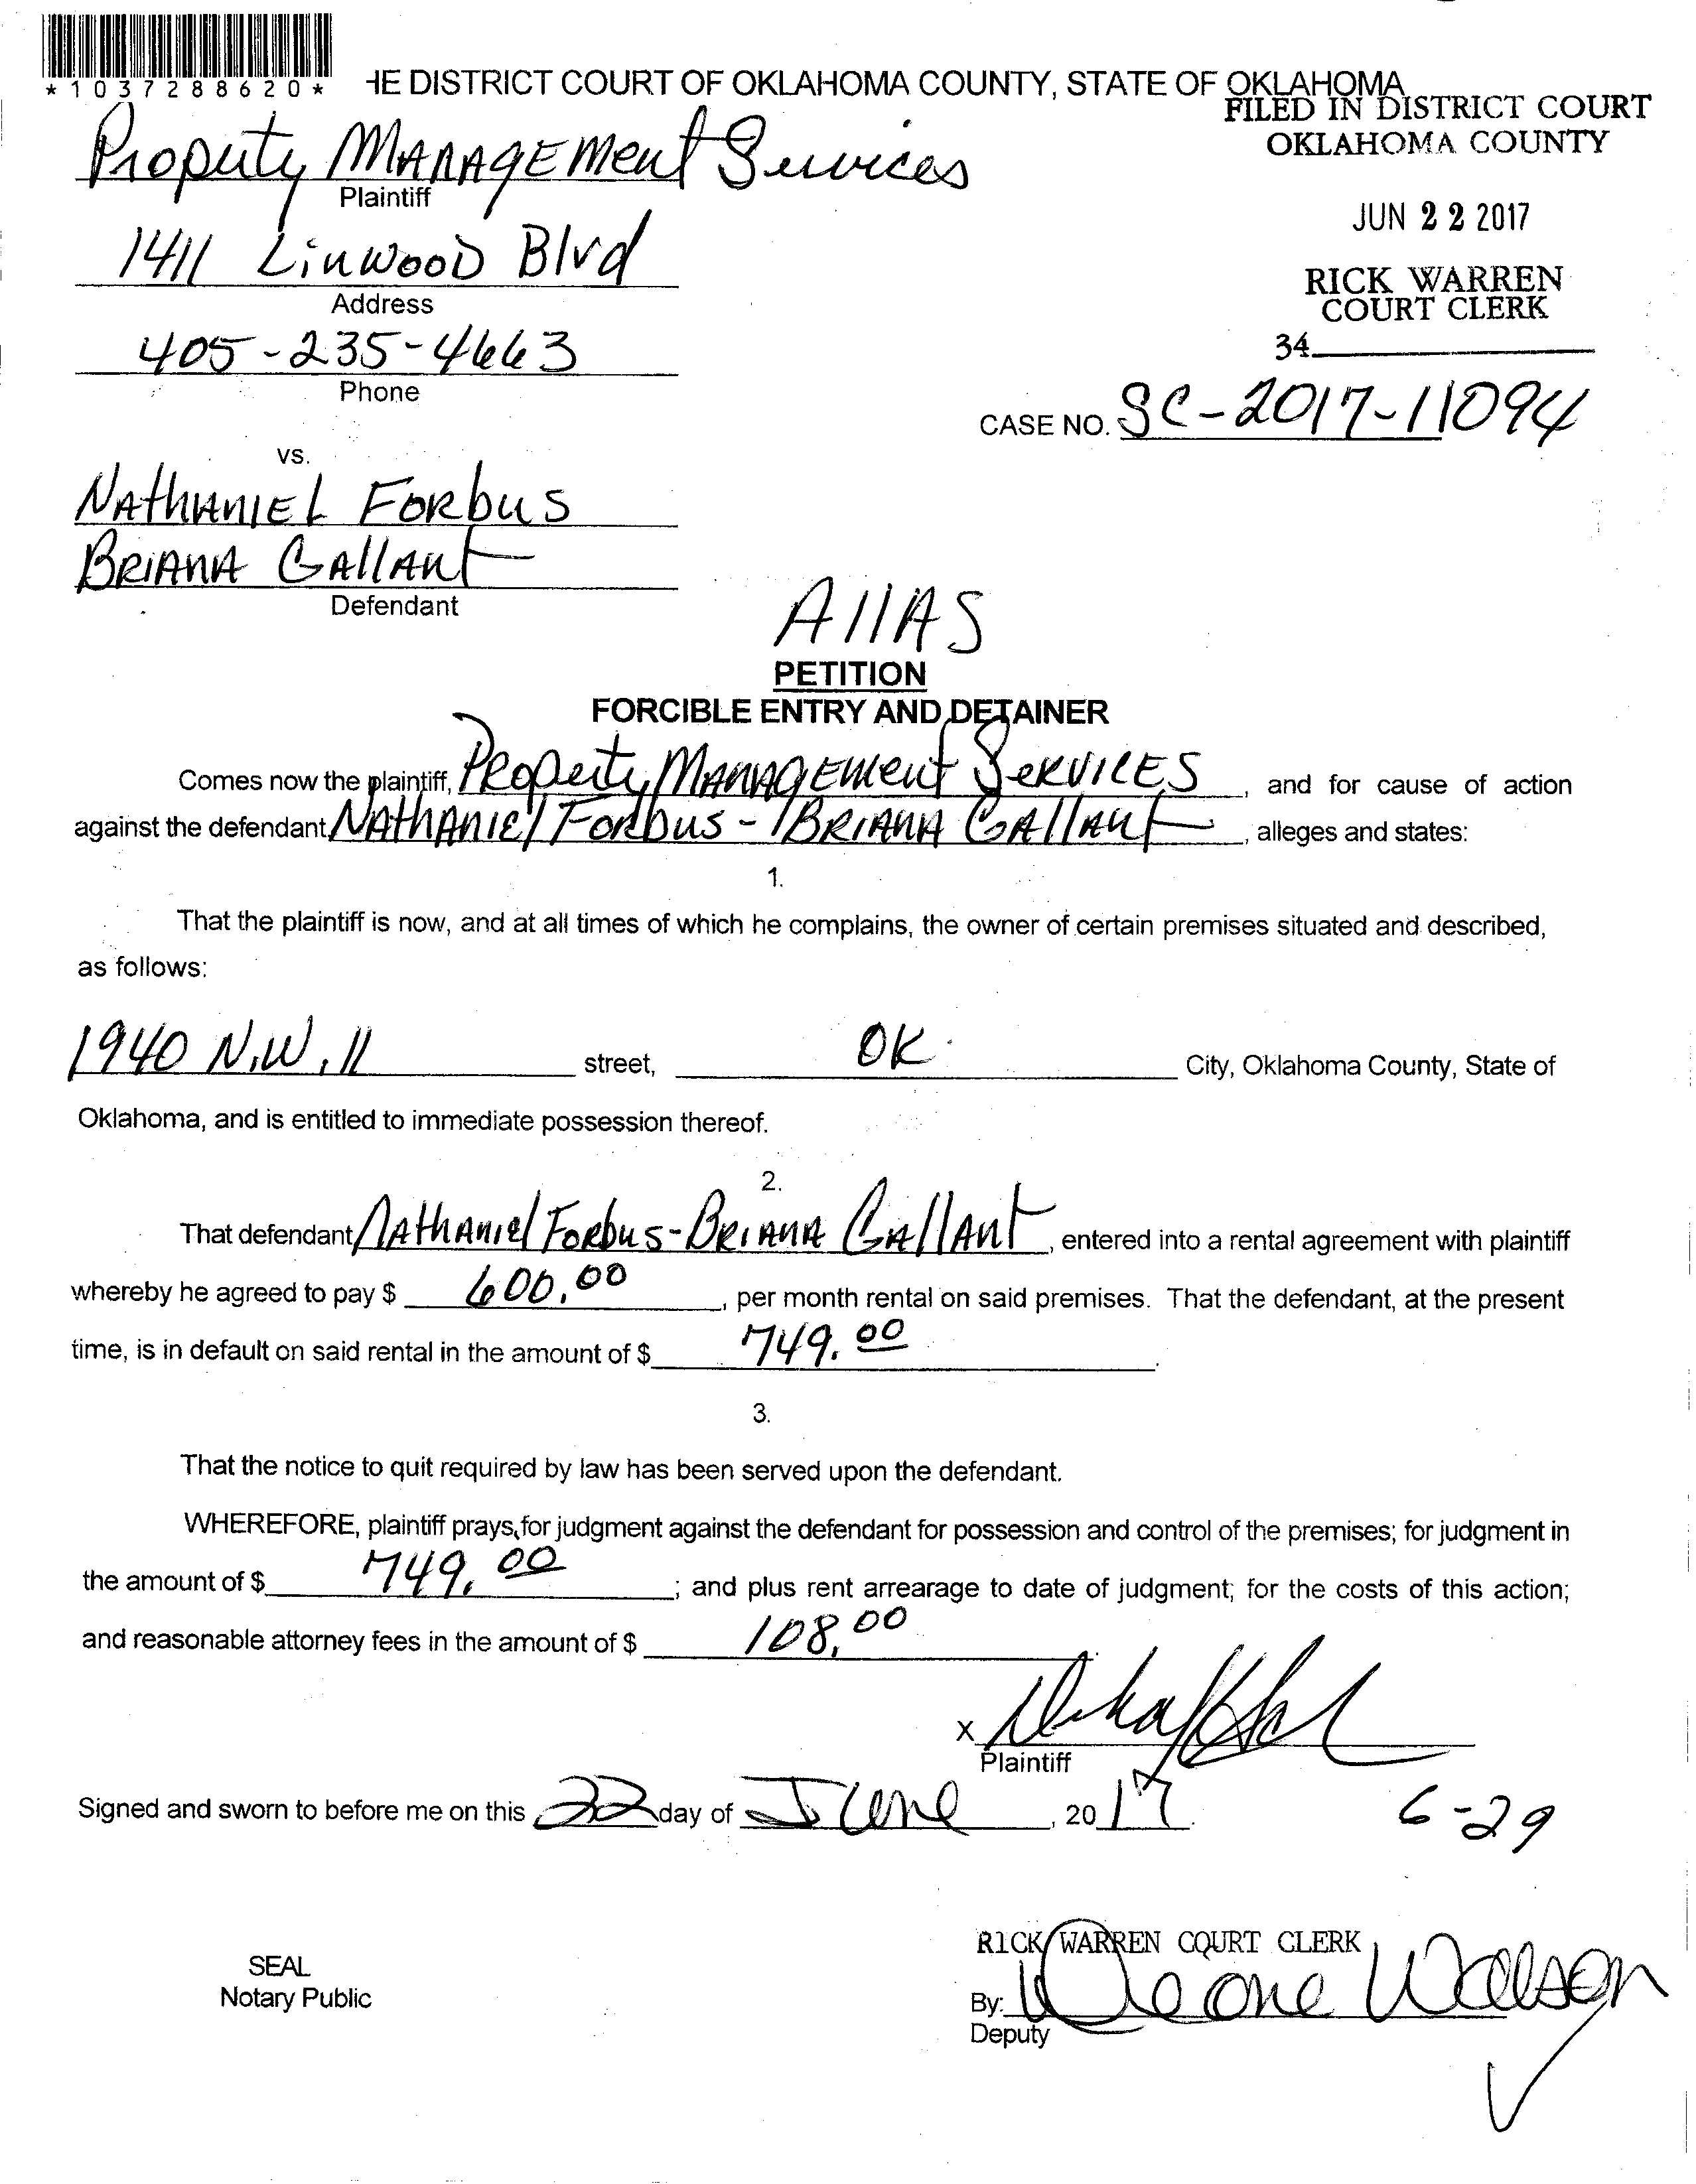 *1037288620*
HE DISTRICT COURT OF OKLAHOMA COUNTY, STATE OF OKLAHOMA
FILED IN DISTRICT COURT
OKLAHOMA COUNTY
Property Management Services
Plaintiff
JUN 22 2017
1411 Linwood Blvd
Address
RICK WARREN
COURT CLERK
34
405-235-4663
Phone
CASE NO. SC-2017-11094
vs.
Nathaniel Forbus
Briana Gallant
Defendant
Alias
PETITION
FORCIBLE ENTRY AND DETAINER
Comes now the plaintiff, Property Management Services, and for cause of action
against the defendant Nathaniel Forbus - Briana Gallant, alleges and states:
1.
That the plaintiff is now, and at all times of which he complains, the owner of certain premises situated and described,
as follows:
1940 N.W. 11 street, OK. City, Oklahoma County, State of
Oklahoma, and is entitled to immediate possession thereof.
2.
That defendant Nathaniel Forbus-Briana Gallant, entered into a rental agreement with plaintiff
whereby he agreed to pay $ 600.00, per month rental on said premises. That the defendant, at the present
time, is in default on said rental in the amount of $ 749.00.
3.
That the notice to quit required by law has been served upon the defendant.
WHEREFORE, plaintiff prays for judgment against the defendant for possession and control of the premises; for judgment in
the amount of $ 749.00; and plus rent arrearage to date of judgment; for the costs of this action;
and reasonable attorney fees in the amount of $ 108.00.
X
Plaintiff
Signed and sworn to before me on this 22 day of June, 2017.
6-29
RICK WARREN COURT CLERK
SEAL
Notary Public
By:
Deputy